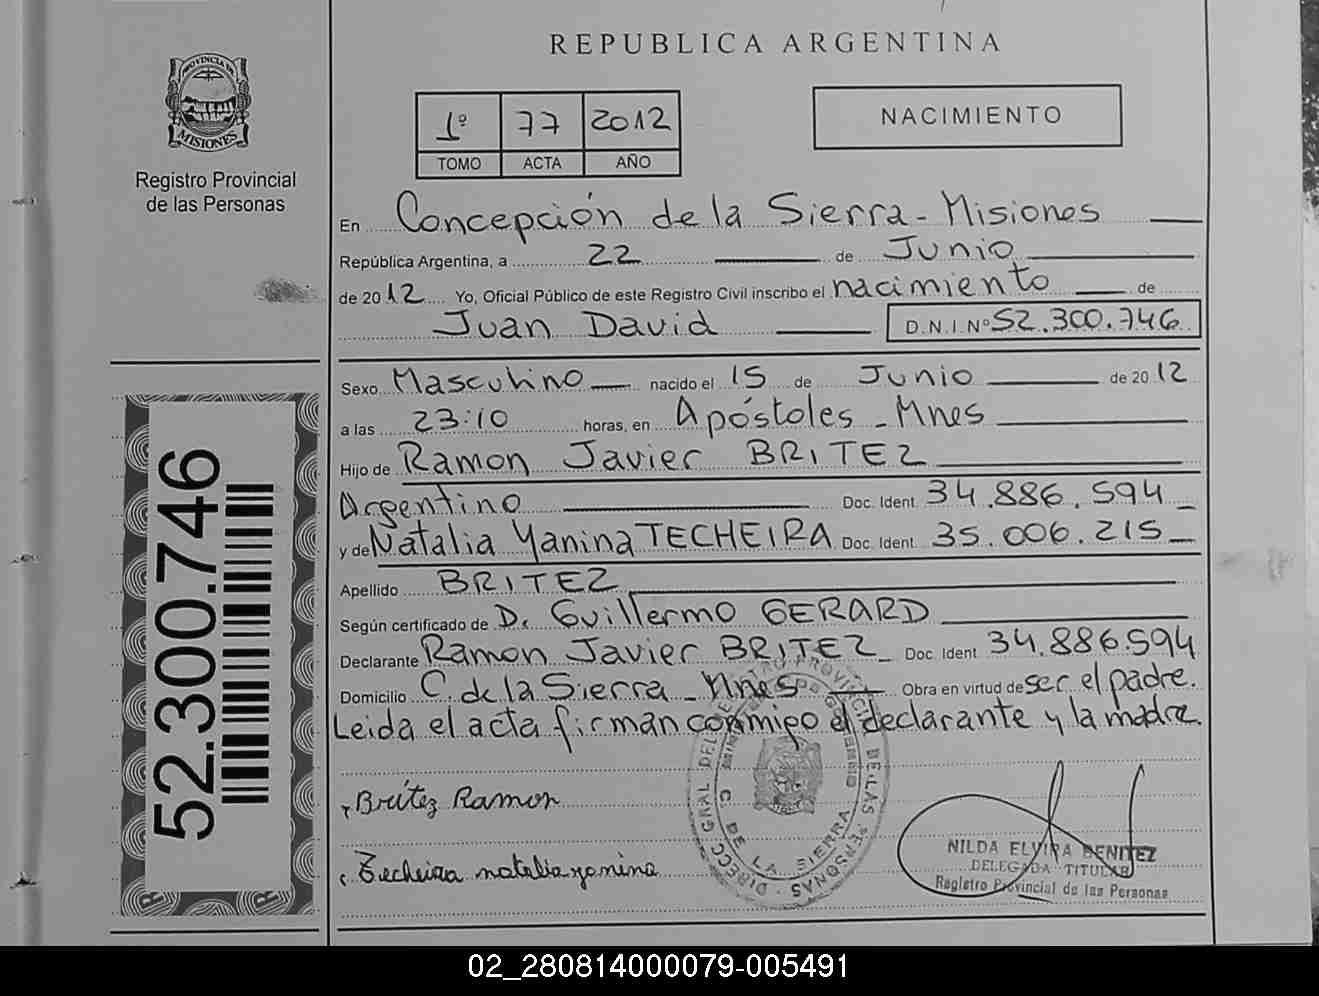 REPUBLICA ARGENTINA
PROVINCIA DE
MISIONES
Registro Provincial
de las Personas
1º 77 2012
TOMO ACTA AÑO
NACIMIENTO
En Concepción de la Sierra - Misiones
República Argentina, a 22 de Junio
de 2012 Yo, Oficial Público de este Registro Civil inscribo el nacimiento de
Juan David D.N.I.Nº 52.300.746
Sexo Masculino nacido el 15 de Junio de 2012
a las 23:10 horas, en Apóstoles - Mnes
Hijo de Ramon Javier BRITEZ
Argentino Doc. Ident. 34.886.594
y de Natalia Yanina TECHEIRA Doc. Ident. 35.006.215
Apellido BRITEZ
Según certificado de D. Guillermo GERARD
Declarante Ramon Javier BRITEZ Doc. Ident. 34.886.594
Domicilio C. de la Sierra - Mnes Obra en virtud de ser el padre.
Leida el acta firman conmigo el declarante y la madre.
Brítez Ramon
Techeira natalia yanina
DE LAS PERSONAS
C. DE LA SIERRA
NILDA ELVIRA BENITEZ
DELEGADA TITULAR
Registro Provincial de las Personas
52.300.746
02_280814000079-005491